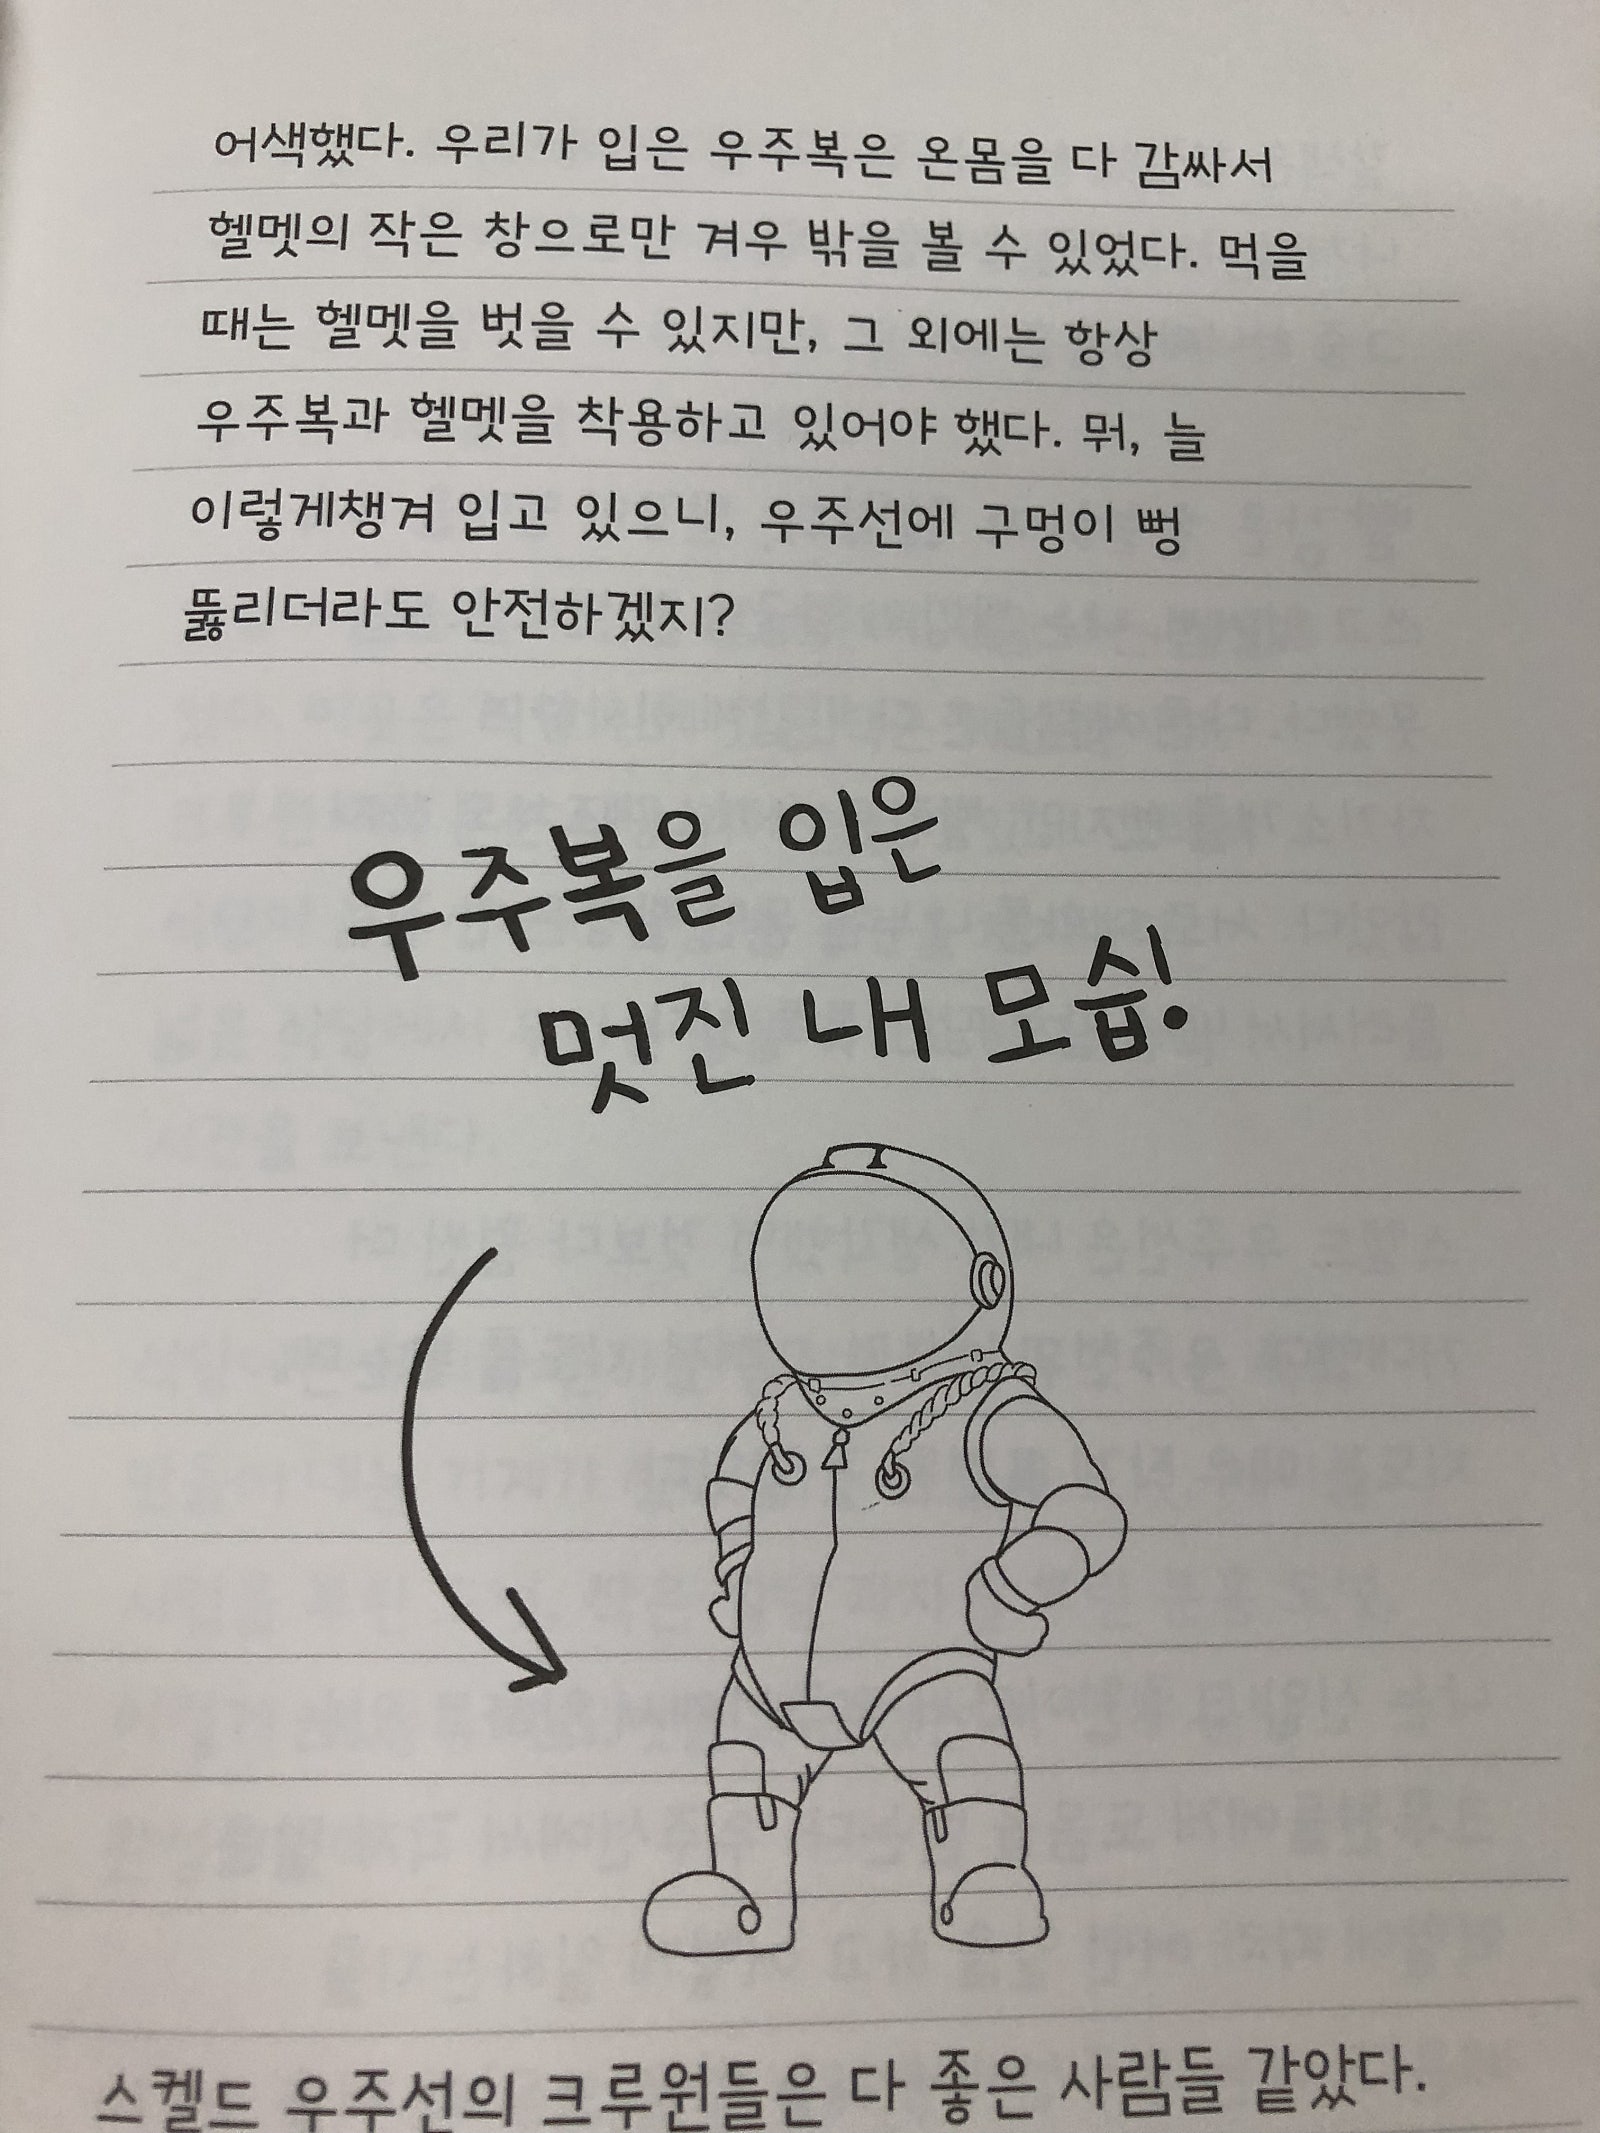 어색했다. 우리가 입은 우주복은 온몸을 다 감싸서
헬멧의 작은 창으로만 겨우 밖을 볼 수 있었다. 먹을
때는 헬멧을 벗을 수 있지만, 그 외에는 항상
우주복과 헬멧을 착용하고 있어야 했다. 뭐, 늘
이렇게챙겨 입고 있으니, 우주선에 구멍이 뻥
뚫리더라도 안전하겠지?
우주복을 입은
멋진 내 모습!
스켈드 우주선의 크루원들은 다 좋은 사람들 같았다.